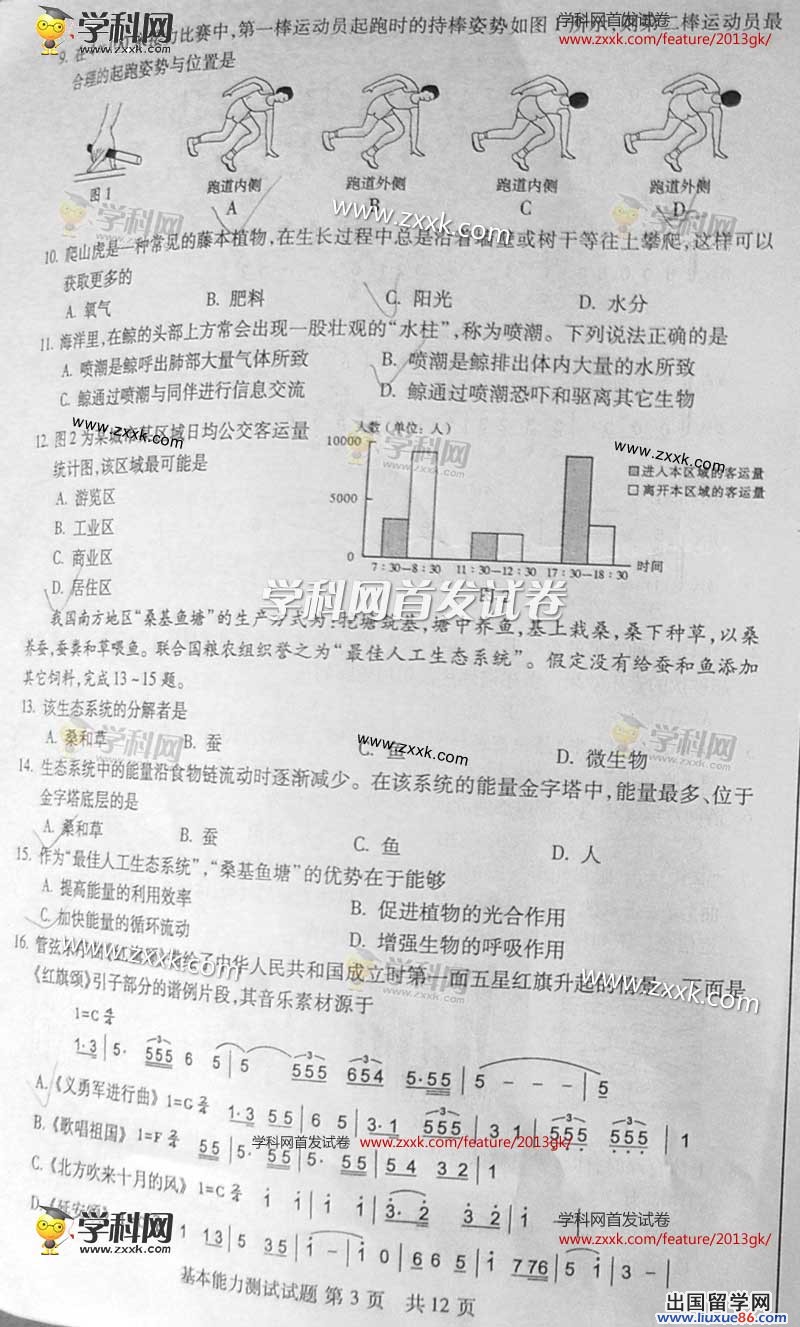 学科网
www.zxxk.com
学科网首发试卷
www.zxxk.com/feature/2013gk/
9. 在
力比赛中,第一棒运动员起跑时的持棒姿势如图1所示,则第二棒运动员最
合理的起跑姿势与位置是
图1
跑道内侧 跑道外侧 跑道内侧 跑道外侧
A B C D
学科网
www.zxxk.com
10. 爬山虎是一种常见的藤本植物,在生长过程中总是沿着墙壁或树干等往上攀爬,这样可以
获取更多的
A. 氧气 B. 肥料 C. 阳光 D. 水分
11. 海洋里,在鲸的头部上方常会出现一股壮观的“水柱”,称为喷潮。下列说法正确的是
A. 喷潮是鲸呼出肺部大量气体所致 B. 喷潮是鲸排出体内大量的水所致
C. 鲸通过喷潮与同伴进行信息交流 D. 鲸通过喷潮恐吓和驱离其它生物
12. 图2为某城市某区域日均公交客运量
统计图,该区域最可能是
A. 游览区
B. 工业区
C. 商业区
D. 居住区
www.zxxk.com
人数(单位:人)
10000
5000
0
7:30—8:30 11:30—12:30 17:30—18:30 时间
进入本区域的客运量
离开本区域的客运量
学科网
www.zxxk.com
学科网首发试卷
我国南方地区“桑基鱼塘”的生产方式为:挖塘筑基,塘中养鱼,基上栽桑,桑下种草,以桑
养蚕,蚕粪和草喂鱼。联合国粮农组织誉之为“最佳人工生态系统”。假定没有给蚕和鱼添加
其它饲料,完成13~15题。
13. 该生态系统的分解者是
A. 桑和草 B. 蚕 C. 鱼 D. 微生物
学科网
www.zxxk.com
学科网
www.zxxk.com
14. 生态系统中的能量沿食物链流动时逐渐减少。在该系统的能量金字塔中,能量最多、位于
金字塔底层的是
A. 桑和草 B. 蚕 C. 鱼 D. 人
15. 作为“最佳人工生态系统”,“桑基鱼塘”的优势在于能够
A. 提高能量的利用效率 B. 促进植物的光合作用
C. 加快能量的循环流动 D. 增强生物的呼吸作用
16. 管弦乐
给了中华人民共和国成立时第一面五星红旗升起的情景。下面是
《红旗颂》引子部分的谱例片段,其音乐素材源于
www.zxxk.com
学科网
www.zxxk.com
1=C 4/4
1·3 | 5· 555 6 5 | 5 555 654 5·55 | 5 - - - | 5
A.《义勇军进行曲》1=G 2/4 1·3 5 5 | 6 5 | 3·1 555 | 3 1 | 555 555 | 1
B.《歌唱祖国》1=F 2/4 55 | 5· 55 | 5· 55 | 54 32 | 1
C.《北方吹来十月的风》1=C 2/4 i i | i i | 3·2 3 2 | i -
D.《延安颂》
1 13 | 5 35 | i - | i 0 | 6 6 5 | i 776 | 5 i | 5 -
学科网首发试卷
www.zxxk.com/feature/2013gk/
学科网
www.zxxk.com
学科网首发试卷
www.zxxk.com/feature/2013gk/
基本能力测试试题 第3页 共12页
出国留学网
www.liuxue86.com